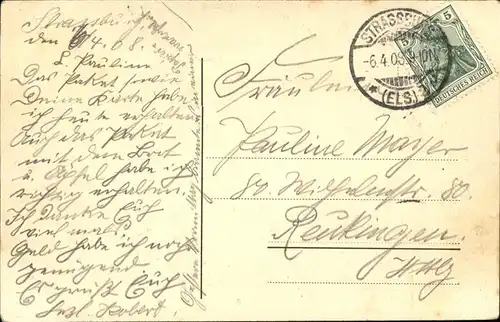 Strassburg
den 6/4.08.
L. Pauline
Das Paket sowie
Deine Karte habe
ich heute erhalten
Auch das Paket
mit dem Brot
u. Äpfel habe ich
richtig erhalten.
Ich danke Euch
vielmals.
Geld habe ich noch
genügend
Es grüßt Euch
Robert.
STRASSBURG
-6.4.08
*(ELS)
5
DEUTSCHES REICH
Fräulein
Pauline Mayer
80 Wilhelmstr. 80.
Reutlingen.
Wttbg